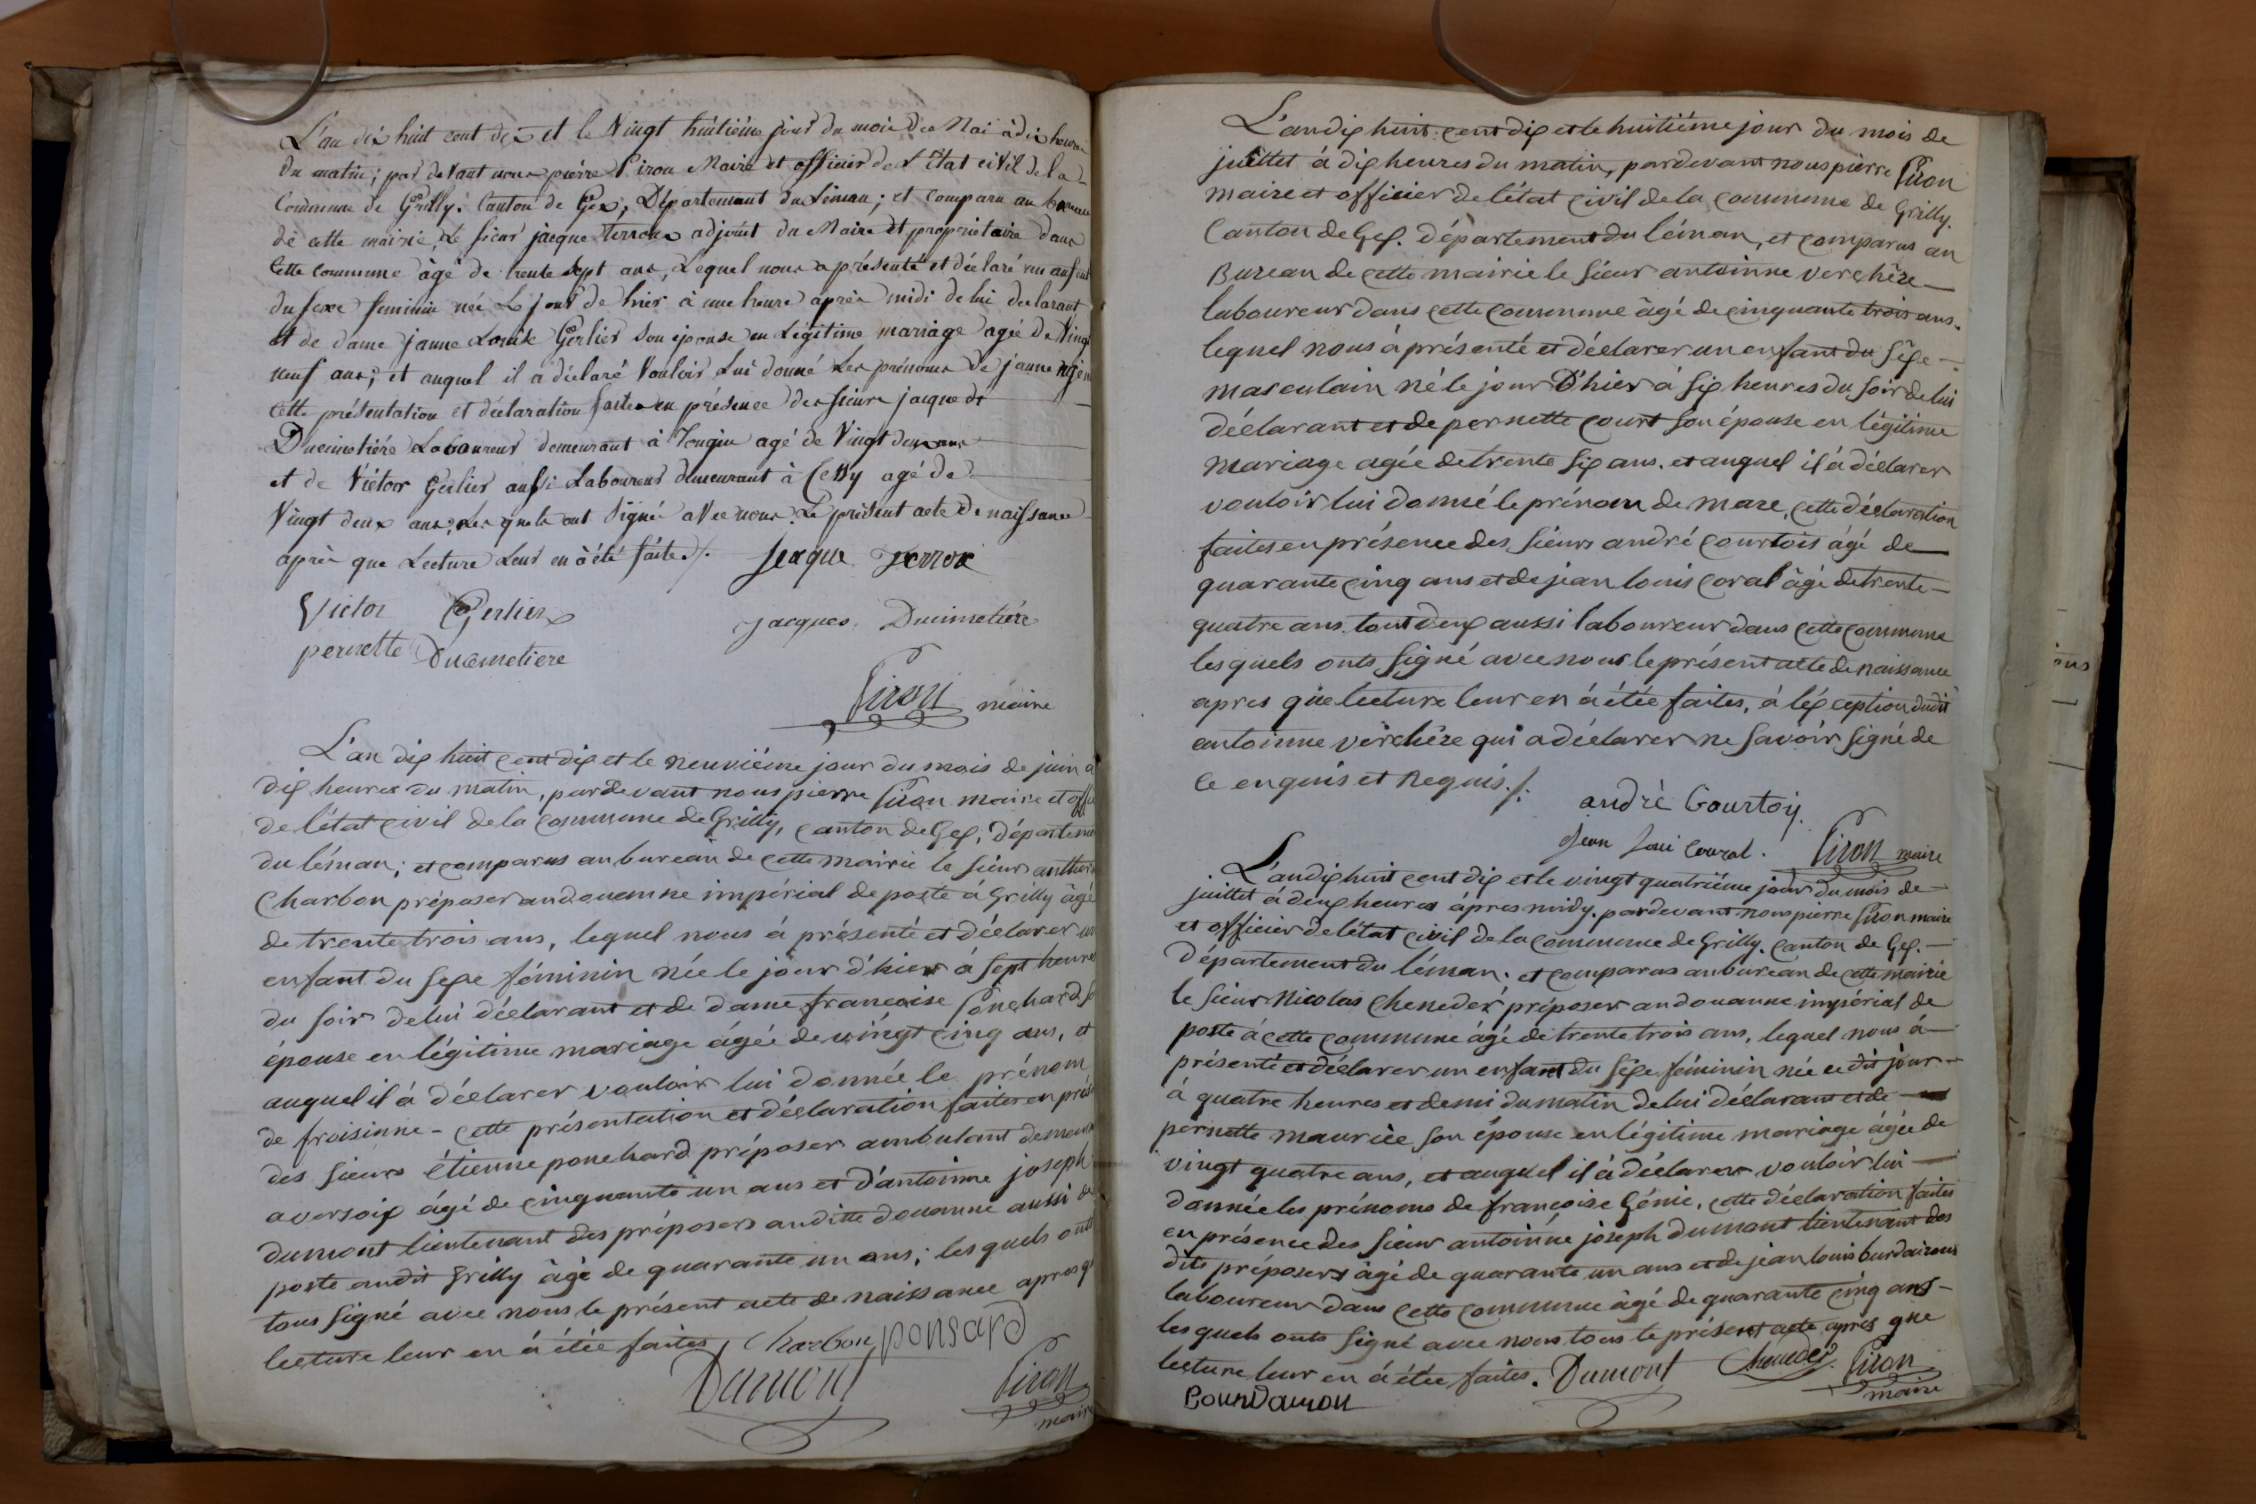 L'an dix huit cent dix et le Vingt huitième jour du mois de Mai à dix heures
du matin; par devant nous pierre Piron Maire et officier de L'état civil de la
Commune de Grilly. Canton de Gex, Département du Léman; et comparu au bureau
de cette mairie, Le sieur jacque Perroux adjoint du Maire et propriétaire dans
Cette commune âgé de trente sept ans, Lequel nous a présenté et déclaré un enfant
du sexe feminin née Le jour de hier à une heure après midi de lui declarant
et de dame janne Louise Gerlier son épouse en Légitime mariage agée de Vingt
neuf ans; et auquel il a déclaré Vouloir Lui donné Les prénoms de janne
cette présentation et déclaration faites en présence des sieurs jacque
Ducimetière Laboureur demeurant à Tougin agé de Vingt deux ans
et de Victor Gerlier aussi Laboureur demeurant à Cessy agé de
Vingt deux ans, Les quels ont Signé avec nous Le présent acte de naissance
après que Lecture Leur en à été faite ./. Jacque Perrox
Victor Gerlier Jacques Ducimetière
pernette Ducimetiere
Piron maire
L'an dix huit cent dix et le neuvième jour du mois de juin à
dix heures du matin, pardevant nous pierre Piron maire et offi
de l'état civil de la commune de Grilly, canton de Gex, Départeme
du léman; et comparus au bureau de cette mairie le sieur
Charbon préposer au douenne impérial de poste à Grilly âgé
de trente trois ans, lequel nous à présenté et déclarer un
enfant du sexe féminin née le jour d'hier à sept heures
du soir de lui déclarant et de dame françoise Ponchard so
épouse en légitime mariage âgée de vingt cinq ans, et
auquel il à déclarer vouloir lui donnée le prénom
de froisinne - cette présentation et déclaration faites en prés
des sieurs étienne ponchard préposer ambulant demeura
a versoix âgé de cinquante un ans et d'antoinne joseph
dumont lieutenant des préposers au ditte douanne aussi de
poste audit Grilly âgé de quarante un ans; les quels onts
tous signé avec nous le présent acte de naissance apres q
lecture leur en à étée faites / Charbon ponsard
Dumont Piron
maire
L'an dix huit cent dix et le huitième jour du mois de
juillet à dix heures du matin, pardevant nous pierre Piron
maire et officier de l'état civil de la commune de Grilly.
Canton de Gex. département du léman, et comparus au
Bureau de cette mairie le sieur antoinne verchère
laboureur dans cette commune âgé de cinquante trois ans.
lequel nous à présenté et déclarer un enfant du sexe
masculain né le jour D'hier à six heures du soir de lui
déclarant et de pernette court son épouse en légitime
mariage agée de trente six ans. et auquel il à déclarer
vouloir lui donné le prénom de marc, cette déclaration
faites en présence des sieurs andré courtois âgé de
quarante cinq ans et de jean louis coral âgé de trente
quatre ans. tout deux aussi laboureur dans cette commune
les quels onts signé avec nous le présent acte de naissance
apres que lecture leur en à étée faites, à léxception dudit
antoinne verchère qui a déclarer ne savoir signé de
ce enquis et Requis ./.
andrè Courtoy.
Jean Loui Coural. Piron maire
L'an dix huit cent dix et le vingt quatrième jour du mois de
juillet à deux heures âpres midy. pardevant nous pierre Piron maire
et officier de l'état civil de la commune de Grilly. canton de Gex.
Département du léman. et comparus au bureau de cette mairie
le sieur Nicolas Cheneder préposer au douanne impérial de
poste à cette commune âgé de trente trois ans, lequel nous à
présenté et déclarer un enfant du sexe féminin née ce dit jour
à quatre heures et demi du matin de lui déclarant et de
pernette mauriée son épouse en légitime mariage âgée de
vingt quatre ans, et auquel il à déclarer vouloir lui
donnée les prénoms de françoise Génie, cette déclaration faites
en présence des sieur antoinne joseph dumont lieutenant des
dits préposers âgé de quarante un ans et de jean louis burdairon
laboureur dans cette commune âgé de quarante cinq ans
les quels onts signé avec nous tous le présent acte apres que
lecture leur en à étée faites. Dumont Cheneder. Piron
maire
BounDairon